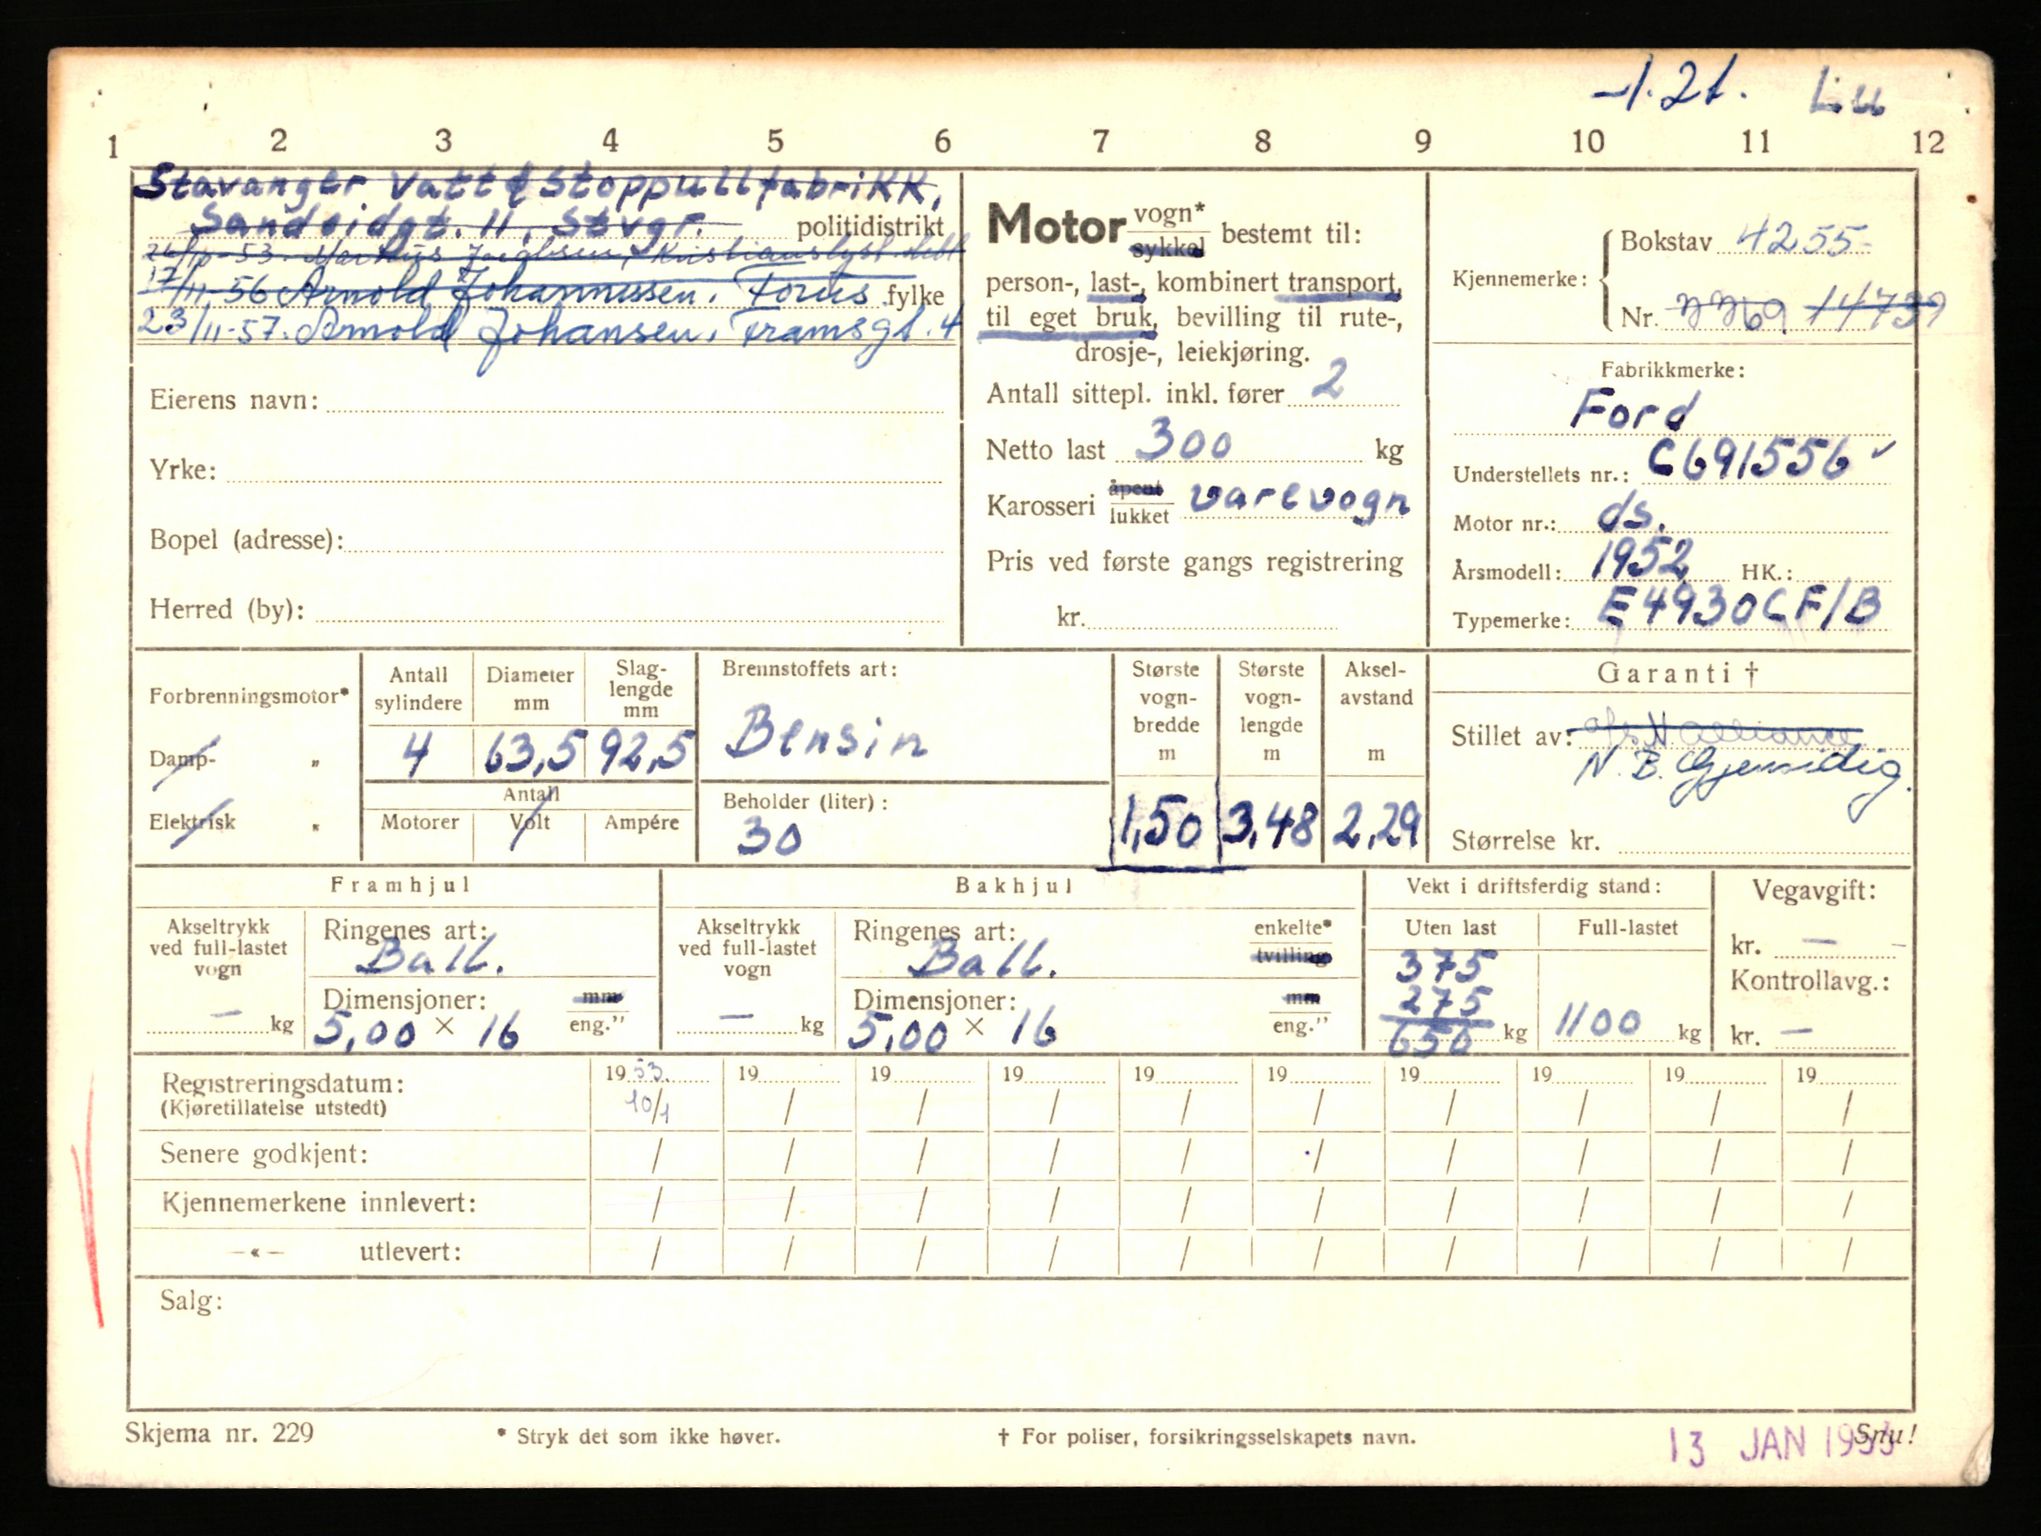 -1.21. Lu
1 2 3 4 5 6 7 8 9 10 11 12
Stavanger Vatt & Stoppullfabrikk,
Sandeidgt. 11, Stvgr. politidistrikt
53. Markus Kristianslyst
17/11-56 Arnold Johannessen. Forus. fylke
23/11-57. Arnold Johansen. Framsgt. 4
Eierens navn:
Yrke:
Bopel (adresse):
Herred (by):
Motor vogn* sykkel bestemt til:
person-, last-, kombinert transport,
til eget bruk, bevilling til rute-,
drosje-, leiekjøring.
Antall sittepl. inkl. fører 2
Netto last 300 kg
Karosseri åpent lukket varevogn
Pris ved første gangs registrering
kr.
Kjennemerke: Bokstav 4255
Nr. 14739
Fabrikkmerke:
Ford
Understellets nr.: C691556
Motor nr.: ds.
Årsmodell: 1952 HK.:
Typemerke: E4930CF/B
Forbrenningsmotor*
Damp- „
Elektrisk „
Antall sylindere 4
Diameter mm 63,5
Slag-lengde mm 92,5
Antall
Motorer Volt Ampére
Brennstoffets art:
Bensin
Beholder (liter):
30
Største vogn-bredde m 1,50
Største vogn-lengde m 3,48
Aksel-avstand m 2,29
Garanti †
Stillet av:
N. B. Gjensidig.
Størrelse kr.
Framhjul
Akseltrykk ved full-lastet vogn
— kg
Ringenes art:
Ball.
Dimensjoner: mm eng."
5,00 × 16
Bakhjul
Akseltrykk ved full-lastet vogn
— kg
Ringenes art: enkelte* tvilling
Ball.
Dimensjoner: mm eng."
5,00 × 16
Vekt i driftsferdig stand:
Uten last Full-lastet
375
275
650 kg 1100 kg
Vegavgift:
kr. —
Kontrollavg.:
kr. —
Registreringsdatum: 1953. 19 19 19 19 19 19 19 19 19
(Kjøretillatelse utstedt) 10/1 / / / / / / / / /
Senere godkjent: / / / / / / / / / /
Kjennemerkene innlevert: / / / / / / / / / /
—«— utlevert: / / / / / / / / / /
Salg:
Skjema nr. 229 * Stryk det som ikke høver. † For poliser, forsikringsselskapets navn. Snu!
13 JAN 1953